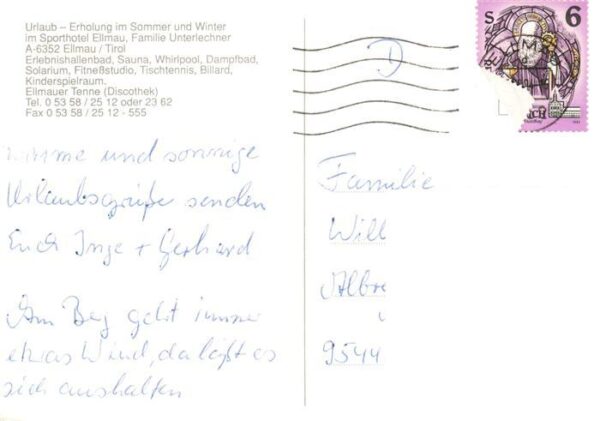 Urlaub – Erholung im Sommer und Winter
im Sporthotel Ellmau, Familie Unterlechner
A-6352 Ellmau / Tirol
Erlebnishallenbad, Sauna, Whirlpool, Dampfbad,
Solarium, Fitneßstudio, Tischtennis, Billard,
Kinderspielraum.
Ellmauer Tenne (Discothek)
Tel. 0 53 58 / 25 12 oder 23 62
Fax 0 53 58 / 25 12 - 555
D
S 6
und sonnige
Urlaubsgrüße senden
Euch Inge + Gerhard
Am Berg geht immer
etwas Wind, da läßt es
sich aushalten
Familie
Will
Albre
9544